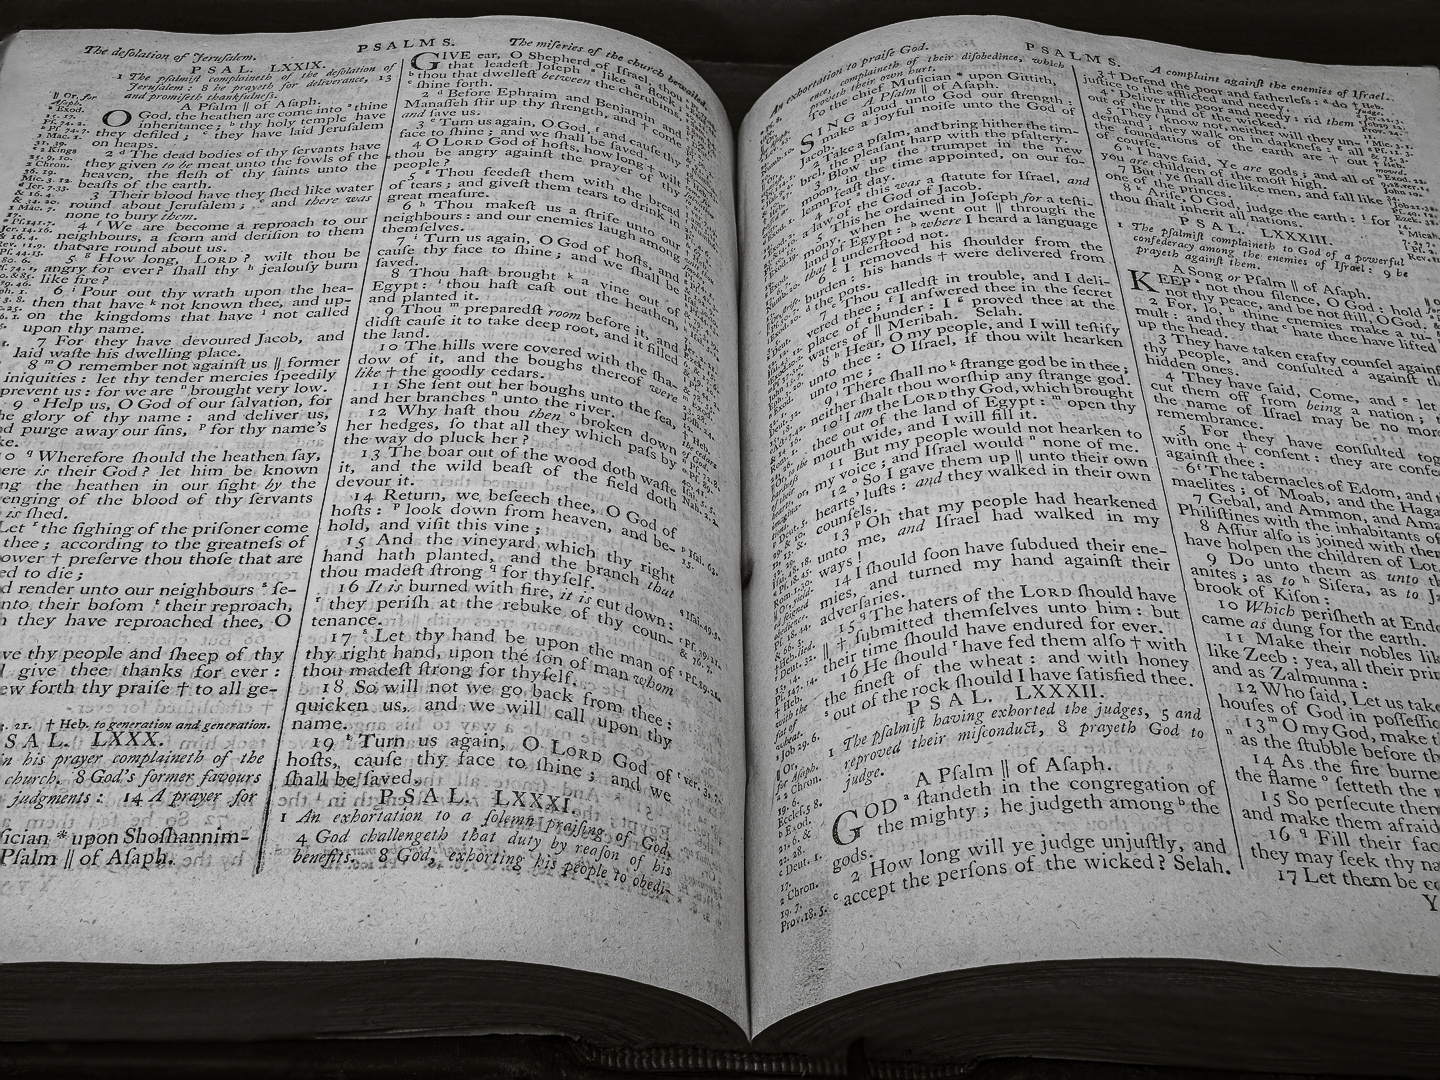 The deſolation of Jeruſalem.
PSALMS.
The miſeries of the church bewailed.
PSAL. LXXIX.
1 The pſalmiſt complaineth of the deſolation of
Jeruſalem: 8 he prayeth for deliverance, 13
and promiſeth thankfulneſs.
A Pſalm || of Aſaph.
O God, the heathen are come into thine
inheritance; ᵇ thy holy temple have
they defiled; ᶜ they have laid Jeruſalem
on heaps.
2 ᵈ The dead bodies of thy ſervants have
they given to be meat unto the fowls of the
heaven, the fleſh of thy ſaints unto the
beaſts of the earth.
3 Their blood have they ſhed like water
round about Jeruſalem; and there was
none to bury them.
4 ᶠ We are become a reproach to our
neighbours, a ſcorn and deriſion to them
that are round about us.
5 ᵍ How long, LORD? wilt thou be
angry for ever? ſhall thy ʰ jealouſy burn
like fire?
6 ⁱ Pour out thy wrath upon the hea-
then that have ᵏ not known thee, and up-
on the kingdoms that have ˡ not called
upon thy name.
7 For they have devoured Jacob, and
laid waſte his dwelling place.
8 ᵐ O remember not againſt us || former
iniquities: let thy tender mercies ſpeedily
prevent us: for we are ⁿ brought very low.
9 ᵒ Help us, O God of our ſalvation, for
the glory of thy name: and deliver us,
purge away our ſins, ᵖ for thy name's
ke.
ᵠ Wherefore ſhould the heathen ſay,
ere is their God? let him be known
ng the heathen in our ſight by the
enging of the blood of thy ſervants
is ſhed.
Let ʳ the ſighing of the priſoner come
thee; according to the greatneſs of
ower † preſerve thou thoſe that are
ed to die;
d render unto our neighbours ˢ ſe-
nto their boſom ᵗ their reproach,
they have reproached thee, O
we thy people and ſheep of thy
give thee thanks for ever:
ew forth thy praiſe † to all ge-
† Heb. to generation and generation.
SAL. LXXX.
in his prayer complaineth of the
church. 8 God's former favours
judgments: 14 A prayer for
ſician * upon Shoſhannim-
Pſalm || of Aſaph.
GIVE ear, O Shepherd of Iſrael, thou
that leadeſt Joſeph ᵃ like a flock; thou
ᵇ that dwelleſt between the cherubims,
ᶜ ſhine forth.
2 ᵈ Before Ephraim and Benjamin and
Manaſſeh ſtir up thy ſtrength, and † come
and ſave us.
3 ᵉ Turn us again, O God, ᶠ and cauſe thy
face to ſhine; and we ſhall be ſaved.
4 O LORD God of hoſts, how long † wilt
thou be angry againſt the prayer of thy
people?
5 ᵍ Thou feedeſt them with the bread
of tears; and giveſt them tears to drink in
great meaſure.
6 ʰ Thou makeſt us a ſtrife unto our
neighbours: and our enemies laugh among
themſelves.
7 ⁱ Turn us again, O God of hoſts, and
cauſe thy face to ſhine; and we ſhall be
ſaved.
8 Thou haſt brought ᵏ a vine out of
Egypt: ˡ thou haſt caſt out the heathen,
and planted it.
9 Thou ᵐ preparedſt room before it, and
didſt cauſe it to take deep root, and it filled
the land.
10 The hills were covered with the ſha-
dow of it, and the boughs thereof were
like † the goodly cedars.
11 She ſent out her boughs unto the ſea,
and her branches ⁿ unto the river.
12 Why haſt thou then ᵒ broken down
her hedges, ſo that all they which paſs by
the way do pluck her?
13 The boar out of the wood doth waſte
it, and the wild beaſt of the field doth
devour it.
14 Return, we beſeech thee, O God of
hoſts: ᵖ look down from heaven, and be-
hold, and viſit this vine;
15 And the vineyard which thy right
hand hath planted, and the branch that
thou madeſt ſtrong ᵠ for thyſelf.
16 It is burned with fire, it is cut down:
ʳ they periſh at the rebuke of thy coun-
tenance.
17 ˢ Let thy hand be upon the man of
thy right hand, upon the ſon of man whom
thou madeſt ſtrong for thyſelf.
18 So will not we go back from thee:
quicken us, and we will call upon thy
name.
19 ᵗ Turn us again, O LORD God of
hoſts, cauſe thy face to ſhine; and we
ſhall be ſaved.
PSAL. LXXXI.
1 An exhortation to a ſolemn praiſing of God.
4 God challengeth that duty by reaſon of his
benefits. 8 God, exhorting his people to obedi-
An exhortation to praiſe God.
PSALMS.
A complaint againſt the enemies of Iſrael.
ence, complaineth of their diſobedience, which
proveth their own hurt.
To the chief Muſician * upon Gittith,
A Pſalm || of Aſaph.
SING aloud unto God our ſtrength:
make a joyful noiſe unto the God of
Jacob.
2 Take a pſalm, and bring hither the tim-
brel, the pleaſant harp with the pſaltery.
3 Blow up the trumpet in the new
moon, in the time appointed, on our ſo-
lemn feaſt day.
4 For ᵃ this was a ſtatute for Iſrael, and
a law of the God of Jacob.
5 This he ordained in Joſeph for a teſti-
mony, when he went out || through the
land of Egypt: ᵇ where I heard a language
that I underſtood not.
6 ᶜ I removed his ſhoulder from the
burden: his hands † were delivered from
the pots.
7 ᵈ Thou calledſt in trouble, and I deli-
vered thee; ᶠ I anſwered thee in the ſecret
place of thunder: I ᵍ proved thee at the
waters of || Meribah. Selah.
8 ʰ Hear, O my people, and I will teſtify
unto thee: O Iſrael, if thou wilt hearken
unto me;
9 ⁱ There ſhall no ᵏ ſtrange god be in thee;
neither ſhalt thou worſhip any ſtrange god.
10 ˡ I am the LORD thy God, which brought
thee out of the land of Egypt: ᵐ open thy
mouth wide, and I will fill it.
11 But my people would not hearken to
my voice; and Iſrael would ⁿ none of me.
12 ᵒ So I gave them up || unto their own
hearts' luſts: and they walked in their own
counſels.
13 ᵖ Oh that my people had hearkened
unto me, and Iſrael had walked in my
ways!
14 I ſhould ſoon have ſubdued their ene-
mies, and turned my hand againſt their
adverſaries.
15 ᵠ The haters of the LORD ſhould have
|| † ſubmitted themſelves unto him: but
their time ſhould have endured for ever.
16 He ſhould ʳ have fed them alſo † with
the fineſt of the wheat: and with honey
ˢ out of the rock ſhould I have ſatisfied thee.
PSAL. LXXXII.
1 The pſalmiſt having exhorted the judges, 5 and
reproved their miſconduct, 8 prayeth God to
judge.
A Pſalm || of Aſaph.
GOD ᵃ ſtandeth in the congregation of
the mighty; he judgeth among ᵇ the
gods.
2 How long will ye judge unjuſtly, and
ᶜ accept the perſons of the wicked? Selah.
3 † Defend the poor and fatherleſs: ᵈ do
juſtice to the afflicted and needy.
4 ᵉ Deliver the poor and needy: rid them
out of the hand of the wicked.
5 They ᶠ know not, neither will they un-
derſtand; they walk on in darkneſs: ᵍ all
the foundations of the earth are † out of
courſe.
6 ʰ I have ſaid, Ye are gods; and all of
you are children of the moſt high.
7 But ⁱ ye ſhall die like men, and fall like
one of the princes.
8 ᵏ Ariſe, O God, judge the earth: ˡ for
thou ſhalt inherit all nations.
PSAL. LXXXIII.
1 The pſalmiſt complaineth to God of a powerful
confederacy among the enemies of Iſrael: 9 he
prayeth againſt them.
A Song or Pſalm || of Aſaph.
KEEP ᵃ not thou ſilence, O God: hold
not thy peace, and be not ſtill, O God.
2 For, lo, ᵇ thine enemies make a tu-
mult: and they that ᶜ hate thee have lifted
up the head.
3 They have taken crafty counſel againſt
thy people, and conſulted ᵈ againſt th
hidden ones.
4 They have ſaid, Come, and ᵉ let
cut them off from being a nation; t
the name of Iſrael may be no more
remembrance.
5 For they have conſulted tog
with one † conſent: they are confe
againſt thee:
6 ᶠ The tabernacles of Edom, and
maelites; of Moab, and the Haga
7 Gebal, and Ammon, and Ama
Philiſtines with the inhabitants of
8 Aſſur alſo is joined with ther
have holpen the children of Lot.
9 Do unto them as unto th
anites; as to ʰ Siſera, as to J
brook of Kiſon:
10 Which periſheth at Endo
came as dung for the earth.
11 Make their nobles lik
like Zeeb: yea, all their prin
and as Zalmunna:
12 Who ſaid, Let us take
houſes of God in poſſeſſio
13 ᵐ O my God, make t
ⁿ as the ſtubble before th
14 As the fire burne
the flame ᵒ ſetteth the
15 So perſecute them
and make them afraid
16 ᵠ Fill their fac
they may ſeek thy na
17 Let them be co
Y